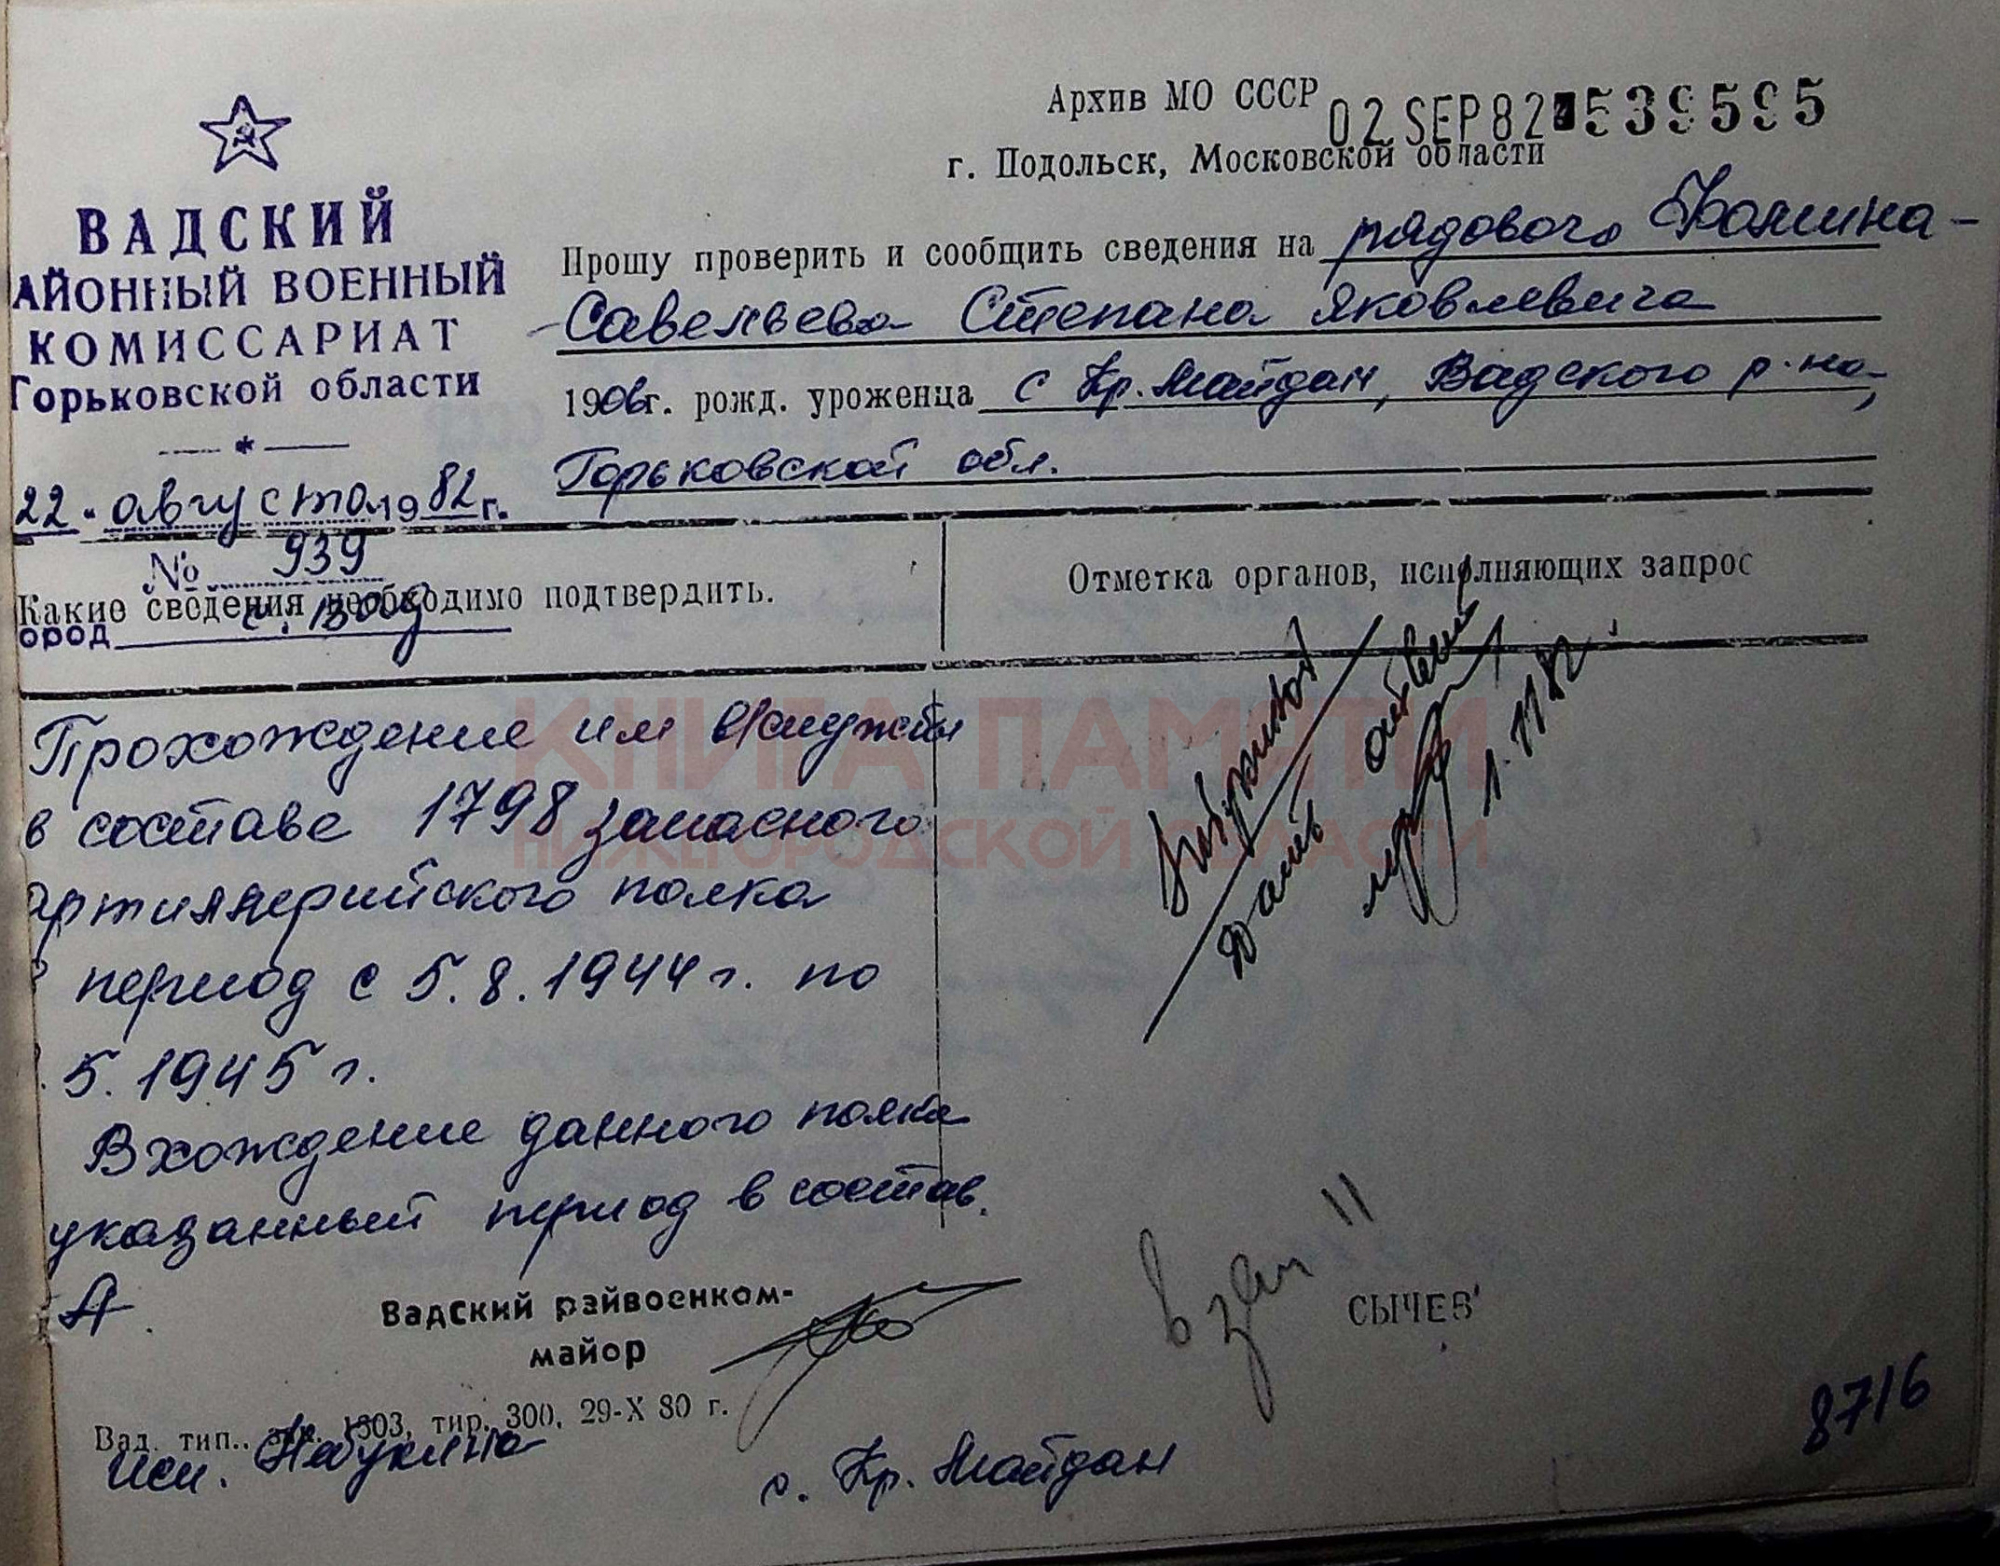 ВАДСКИЙ
АЙОННЫЙ ВОЕННЫЙ
КОМИССАРИАТ
Горьковской области
22 августа 1982 г.
№ 939
ород с. Вад
Архив МО СССР
02 SEP 82 539595
г. Подольск, Московской области
Прошу проверить и сообщить сведения на рядового Фомина-
-Савельева Степана Яковлевича
1906г. рожд. уроженца с Кр. Майдан, Вадского р-на,
Горьковской обл.
Какие сведения необходимо подтвердить.
Отметка органов, исполняющих запрос
Прохождение им в/службы
в составе 1798 запасного
артиллерийского полка
период с 5.8.1944 г. по
5.1945 г.
Вхождение данного полка
указанный период в состав.
Дать ответ
1.11.82
КНИГА ПАМЯТИ
НИЖЕГОРОДСКОЙ ОБЛАСТИ
А
Вадский райвоенком-
майор
СЫЧЕВ
Вад. тип., 1303, тир. 300, 29-X 80 г.
исп.
с. Кр. Майдан
8716